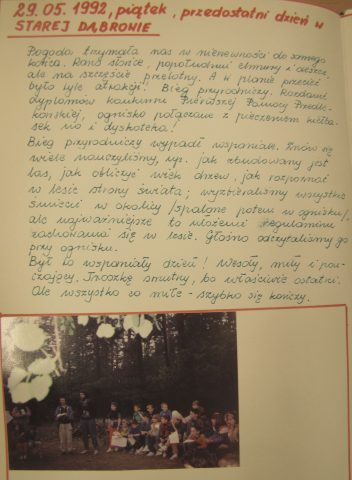 29.05.1992, piątek, przedostatni dzień w
STAREJ DĄBROWIE
Pogoda trzymała nas w niepewności do samego
końca. Rano słońce, popołudniu chmury i deszcz,
ale na szczęście przelotny. A w planie przecież
było tyle atrakcji! Bieg przyrodniczy. Rozdanie
dyplomów konkursu Pierwszej Pomocy Przedle-
karskiej, ognisko połączone z pieczeniem kiełba-
sek no i dyskoteka!
Bieg przyrodniczy wypadł wspaniale. Znów się
wiele nauczyliśmy, np. jak zbudowany jest
las, jak obliczyć wiek drzew, jak rozpoznać
w lesie strony świata; wyzbieraliśmy wszystkie
śmieci w okolicy /spalone potem w ognisku/,
ale najważniejsze to ułożenie regulaminu
zachowania się w lesie. Głośno odczytaliśmy go
przy ognisku.
Był to wspaniały dzień! Wesoły, miły i pou-
czający. Troszkę smutny, bo właściwie ostatni.
Ale wszystko co miłe - szybko się kończy.